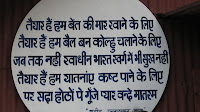 तैयार हैं हम बेत की मार खाने के लिए
तैयार हैं हम बैल बन कोल्हू चलाने के लिए
जब तक नहीं स्वाधीन भारत स्वर्ग में भी सुख नहीं
तैयार हैं हम यातनाएं कष्ट पाने के लिए
पर सदा होठों पे गूँजे प्यार वन्दे मातरम